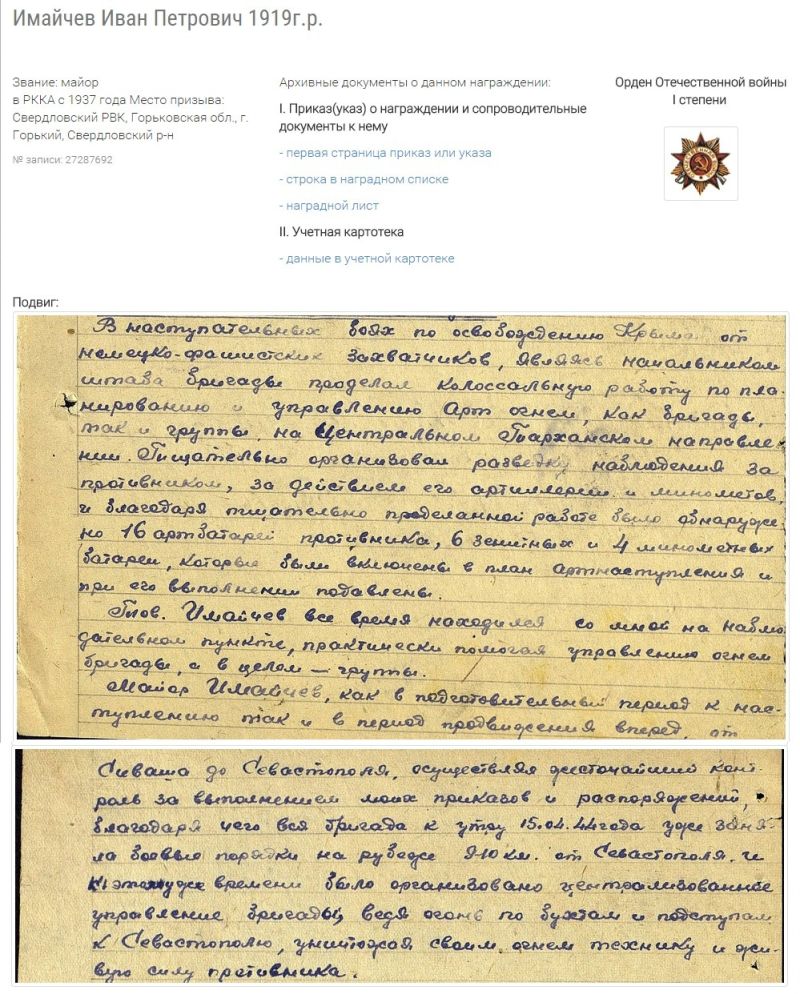 Имайчев Иван Петрович 1919г.р.
Звание: майор
в РККА с 1937 года Место призыва:
Свердловский РВК, Горьковская обл., г.
Горький, Свердловский р-н
№ записи: 27287692
Архивные документы о данном награждении:
I. Приказ(указ) о награждении и сопроводительные
документы к нему
- первая страница приказ или указа
- строка в наградном списке
- наградной лист
II. Учетная картотека
- данные в учетной картотеке
Орден Отечественной войны
I степени
Подвиг:
В наступательных боях по освобождению Крыма от
немецко-фашистских захватчиков, являясь начальником
штаба бригады проделал колоссальную работу по пла-
нированию и управлению Арт огнем, как бригады,
так и группы, на Центральном Тарханском направле-
нии. Тщательно организовал разведку наблюдения за
противником, за действием его артиллерии и минометов,
и благодаря тщательно проделанной работе было обнаруже-
но 16 артбатарей противника, 6 зенитных и 4 минометных
батареи, которые были включены в план артнаступления и
при его выполнении подавлены.
Тов. Имайчев все время находился со мной на наблю-
дательном пункте, практически помогая управлению огнем
бригады, а в целом — группы.
Майор Имайчев, как в подготовительный период к нас-
туплению так и в период продвижения вперед, от
Сиваша до Севастополя, осуществляя жесточайший конт-
роль за выполнением моих приказов и распоряжений,
благодаря чего вся бригада к утру 15.04.44 года уже заня-
ла боевые порядки на рубеже 9-10 км. от Севастополя. и
к этому же времени было организовано централизованное
управление бригады, ведя огонь по бухтам и подступам
к Севастополю, уничтожая своим огнем технику и жи-
вую силу противника.